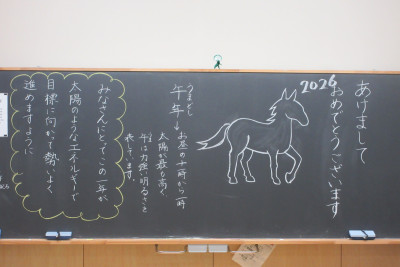 あけまして
おめでとうございます
2026
うまどし
午年は
お昼の十一時から一時
太陽が最も高く
午は力強い明るさを
表しています。
みなさんにとってこの一年が
太陽のようなエネルギーで
目標に向かって勢いよく
進めますように